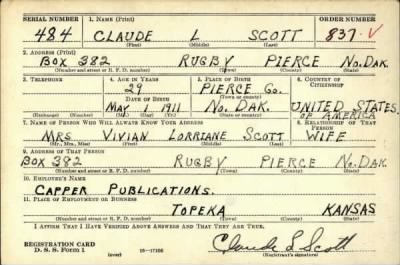 SERIAL NUMBER 1. NAME (Print) ORDER NUMBER
484 CLAUDE L SCOTT 837 V
(First) (Middle) (Last)
2. ADDRESS (Print)
BOX 382 RUGBY PIERCE NO. DAK.
(Number and street or R. F. D. number) (Town) (County) (State)
3. TELEPHONE 4. AGE IN YEARS 5. PLACE OF BIRTH 6. COUNTRY OF CITIZENSHIP
29 PIERCE CO.
DATE OF BIRTH (Town or county)
MAY 1 1911 NO. DAK. UNITED STATES OF AMERICA
(Exchange) (Number) (Mo.) (Day) (Yr.) (State or country)
7. NAME OF PERSON WHO WILL ALWAYS KNOW YOUR ADDRESS 8. RELATIONSHIP OF THAT PERSON
MRS VIVIAN LORRIANE SCOTT WIFE
(Mr., Mrs., Miss) (First) (Middle) (Last)
9. ADDRESS OF THAT PERSON
BOX 382 RUGBY PIERCE NO. DAK
(Number and street or R. F. D. number) (Town) (County) (State)
10. EMPLOYER'S NAME
CAPPER PUBLICATIONS.
11. PLACE OF EMPLOYMENT OR BUSINESS
TOPEKA KANSAS
(Number and street or R. F. D. number) (Town) (County) (State)
I AFFIRM THAT I HAVE VERIFIED ABOVE ANSWERS AND THAT THEY ARE TRUE.
REGISTRATION CARD
D. S. S. Form 1 (over) 16-17105 Claude L Scott
(Registrant's signature)